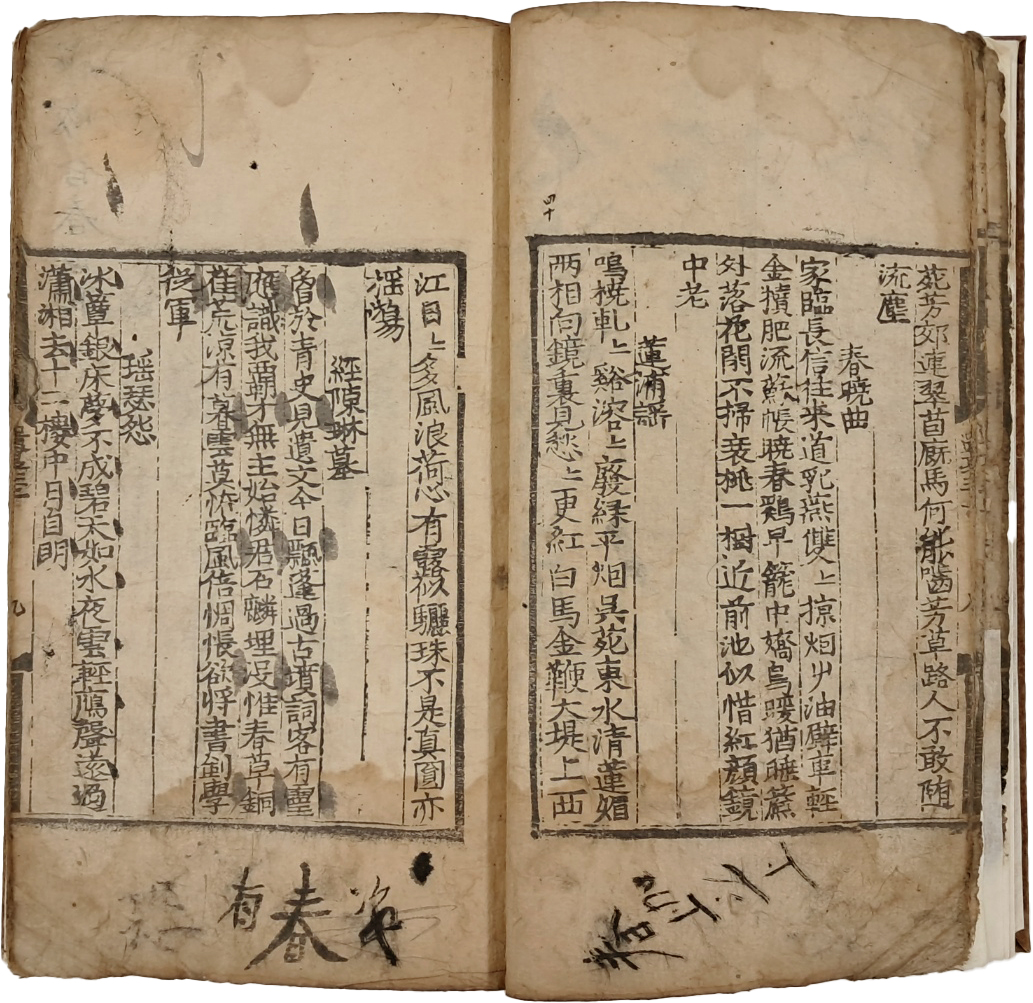 四十
苑芳郊連翠苜厩馬何能嚙芳草路人不敢随
流塵
春曉曲
家臨長信往来道乳燕雙〻掠烟屮油壁車輕
金犢肥流蘇帳曉春鷄早籠中嬌鳥暖猶睡簾
外落花閑不掃衰桃一樹近前池似惜紅顔鏡
中老
蓮浦謡
鳴桡軋〻谿溶〻廢緑平烟呉苑東水清蓮媚
两相向鏡裏見愁〻更紅白馬金鞭大堤上西
江目〻多風浪荷心有露似驪珠不是真圓亦
揺蕩
經陳琳墓
曽於青史見遺文今日飄蓬過古墳詞客有靈
應識我覇才無主始憐君石麟埋没惟春草銅
雀荒凉有暮雲莫恠臨風倍惆悵欲将書劍學
従軍
瑶瑟怨
冰簟銀床夢不成碧天如水夜雲輕鴈聲遠過
瀟湘去十二樓中月自明
九
春
有